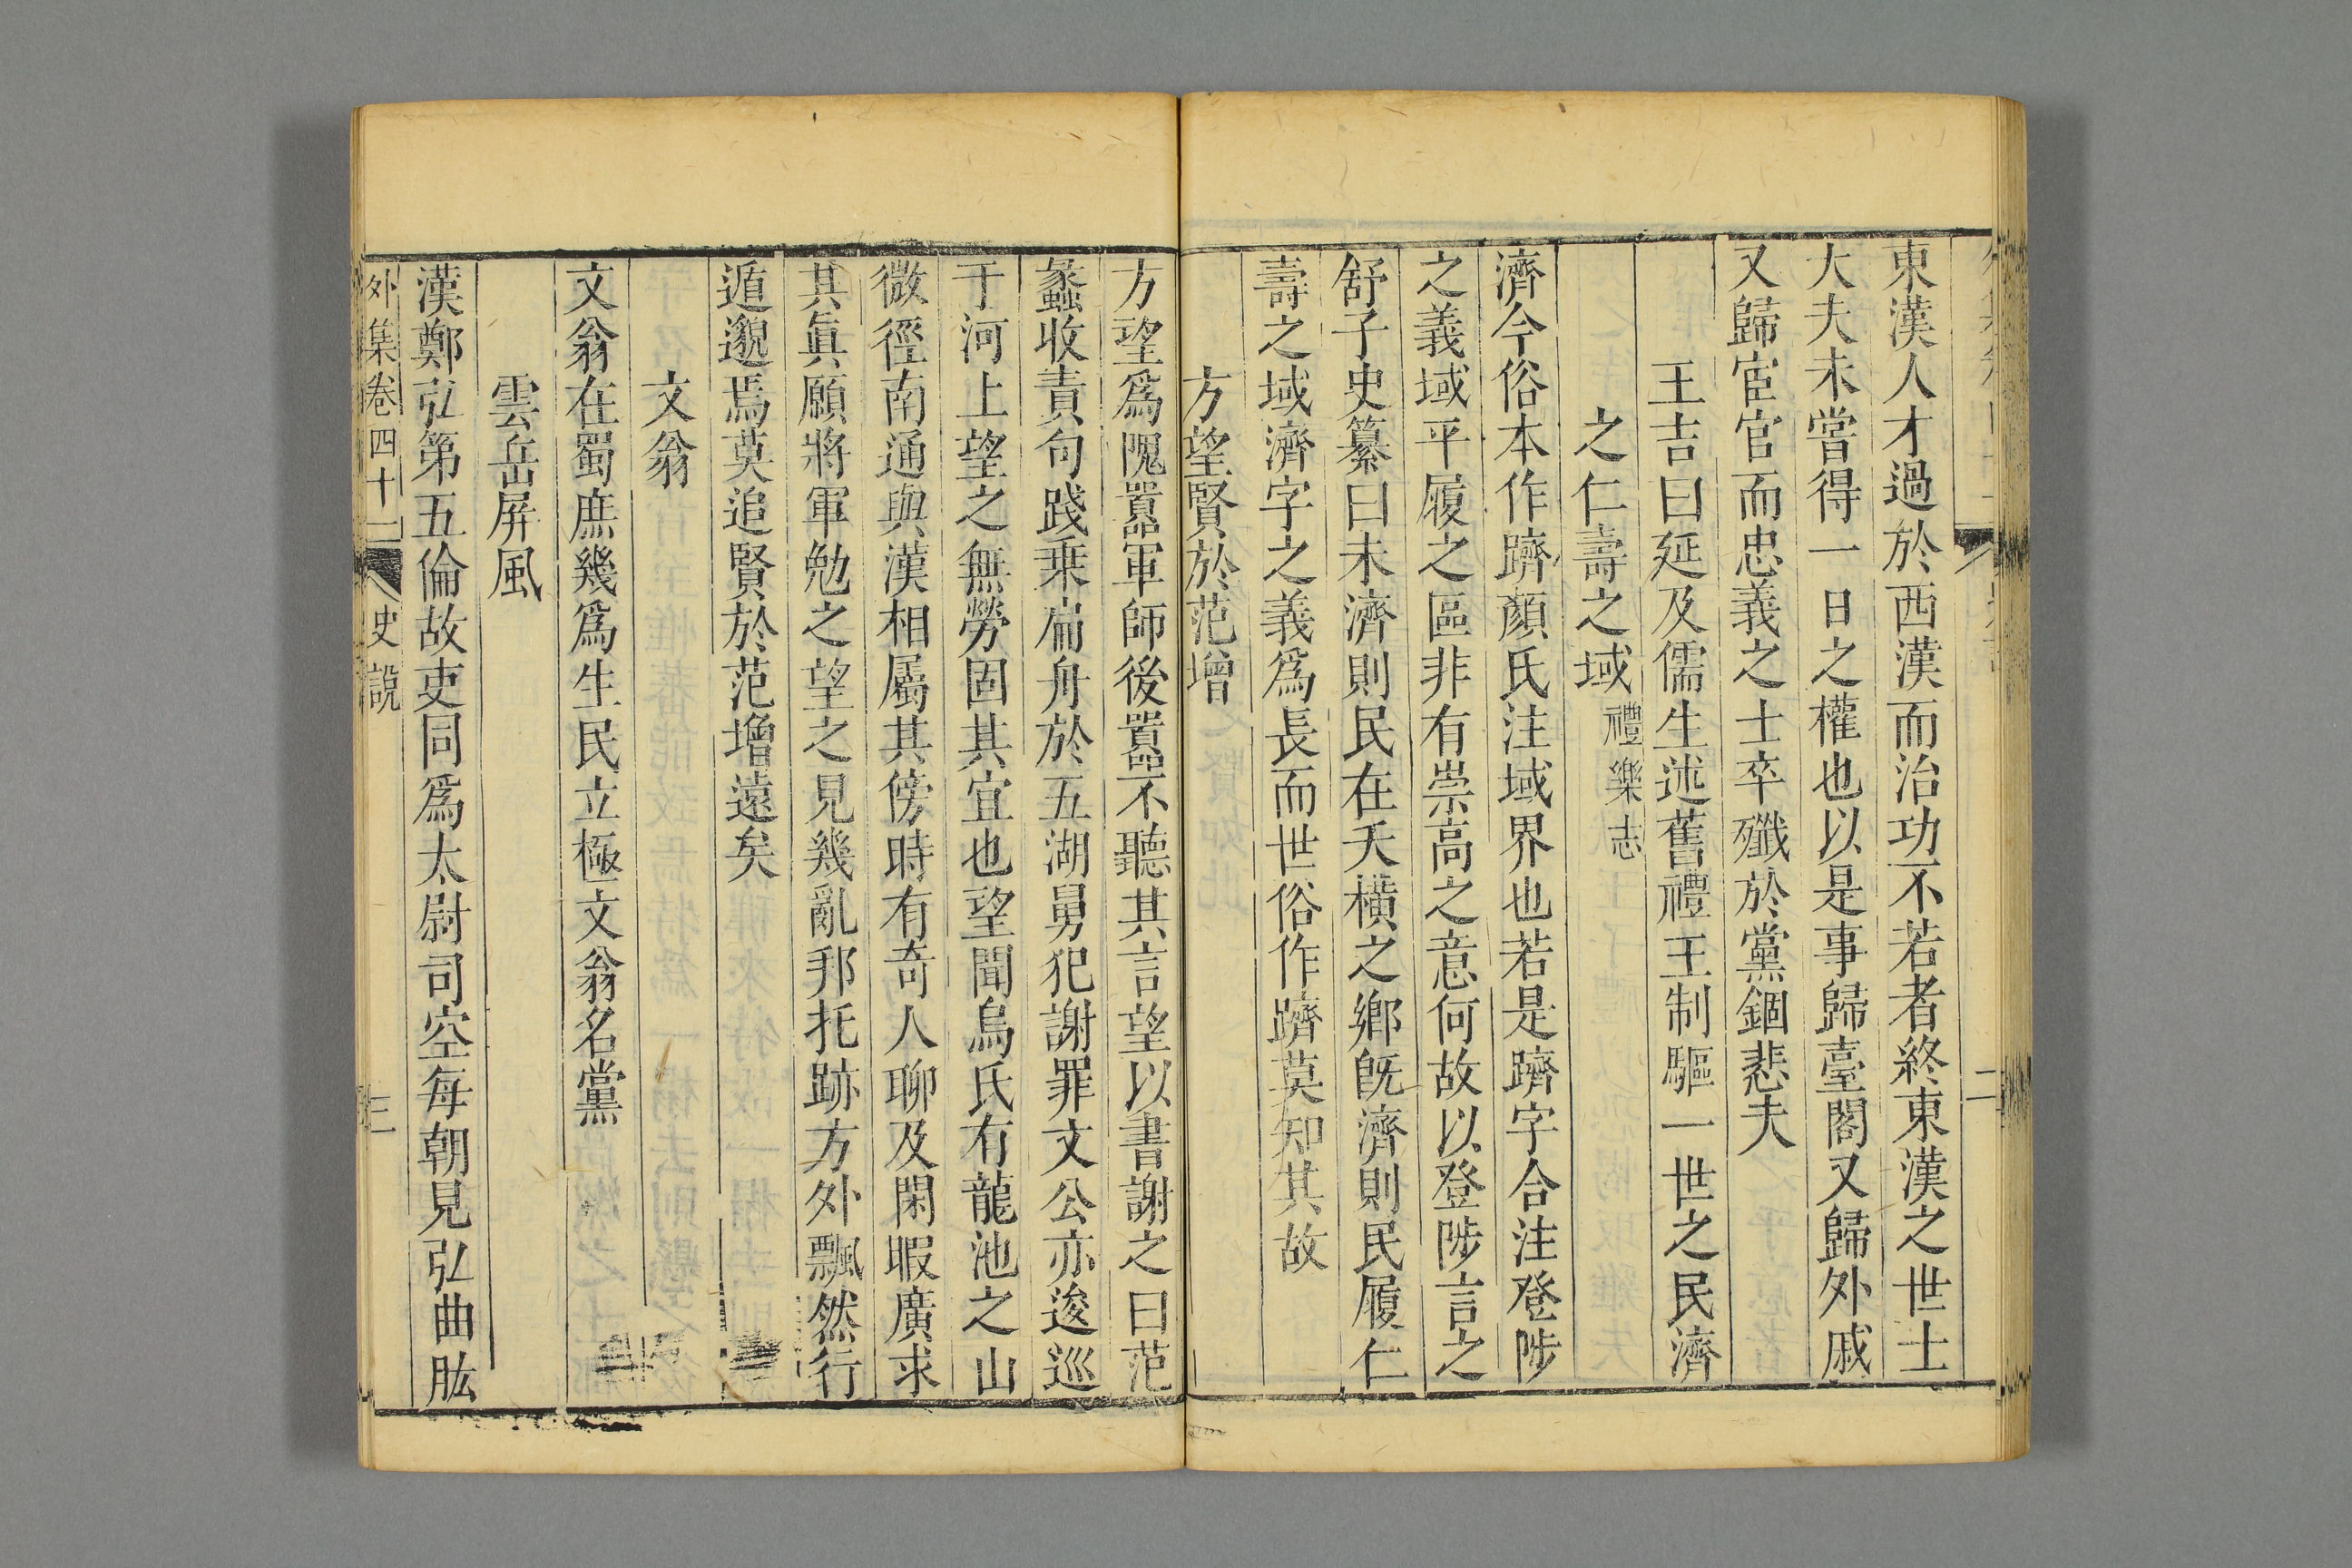 東漢人才過於西漢而治功不若者終東漢之世士
大夫未嘗得一日之權也以是事歸臺閣又歸外戚
又歸宦官而忠義之士卒殲於黨錮悲夫
王吉曰延及儒生述舊禮王制驅一世之民濟
之仁壽之域禮樂志
濟今俗本作躋顏氏注域界也若是躋字合注登陟
之義域平履之區非有崇高之意何故以登陟言之
舒子史纂曰未濟則民在夭橫之鄉旣濟則民履仁
壽之域濟字之義爲長而世俗作躋莫知其故
方望賢於范增
方望爲隗囂軍師後囂不聽其言望以書謝之曰范
蠡收責句踐乗扁舟於五湖舅犯謝罪文公亦逡巡
于河上望之無勞固其宜也望聞烏氏有龍池之山
微徑南通與漢相屬其傍時有奇人聊及閑暇廣求
其眞願將軍勉之望之見幾亂邦托跡方外飄然行
遁邈焉莫追賢於范增遠矣
文翁
文翁在蜀庶幾爲生民立極文翁名黨
雲岳屛風
漢鄭弘第五倫故吏同爲太尉司空每朝見弘曲肱
外集卷四十一
史說
三
二